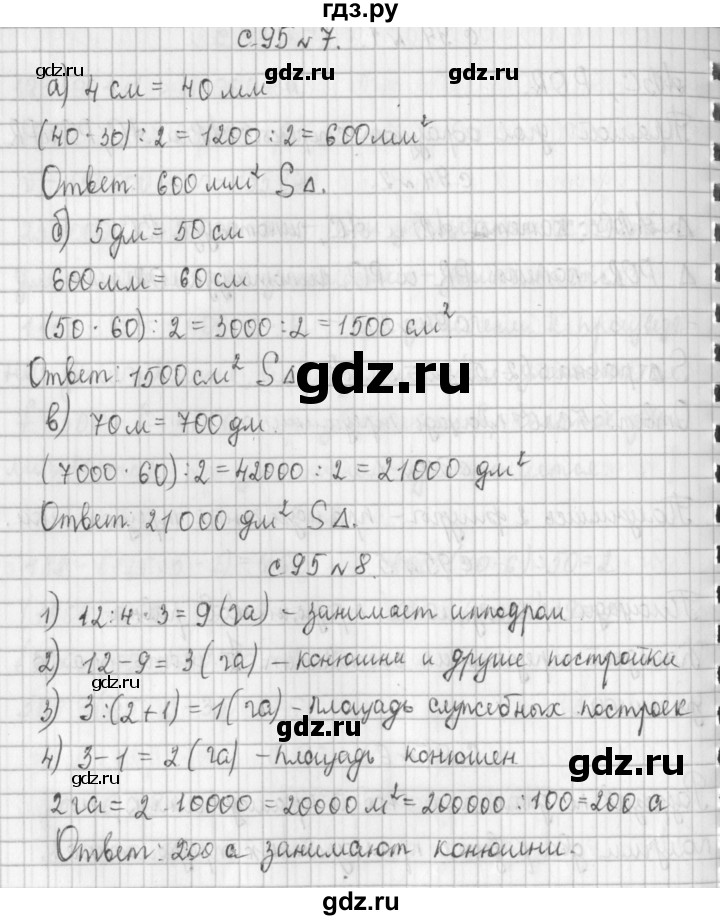 гдз.ру
с.95 №7.
gdz.ru gdz.ru
а) 4 см = 40 мм
(40 · 30) : 2 = 1200 : 2 = 600 мм²
Ответ: 600 мм² S△.
gdz.ru
б) 5 дм = 50 см
600 мм = 60 см
(50 · 60) : 2 = 3000 : 2 = 1500 см²
gdz.ru
Ответ: 1500 см² S△
gdz.ru
в) 70 м = 700 дм.
(7000 · 60) : 2 = 42000 : 2 = 21000 дм²
gdz.ru
Ответ: 21000 дм² S△.
с.95 №8.
gdz.ru
1) 12 : 4 · 3 = 9 (га) – занимает ипподром
2) 12 – 9 = 3 (га) – конюшни и другие постройки
gdz.ru
3) 3 : (2 + 1) = 1 (га) – площадь служебных построек
gdz.ru
4) 3 – 1 = 2 (га) – площадь конюшен
gdz.ru
gdz.ru
2 га = 2 · 10000 = 20000 м² = 200000 : 100 = 200 а
Ответ: 200 а занимают конюшни.
gdz.ru
gdz.ru